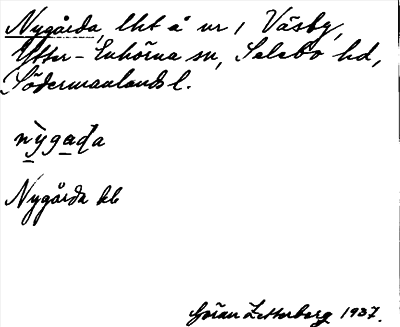 Nygårda, lht å nr 1 Väsby,
Ytter-Enhörna sn, Selebo hd,
Södermanlands l.
nỳgaḍa
Nygårda kb
Göran Zetterberg 1937.